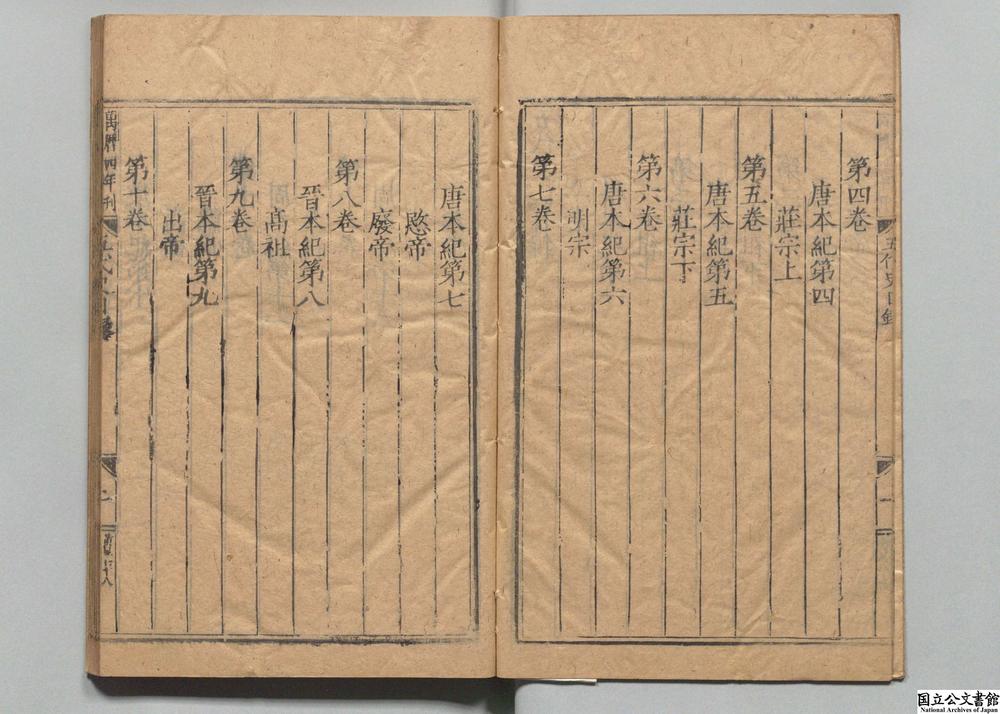 第四卷
唐本紀第四
莊宗上
第五卷
唐本紀第五
莊宗下
第六卷
唐本紀第六
明宗
第七卷
唐本紀第七
愍帝
廢帝
第八卷
晉本紀第八
髙祖
第九卷
晉本紀第九
出帝
第十卷
萬曆四年刊
五代史目錄
一
二
国立公文書館
National Archives of Japan